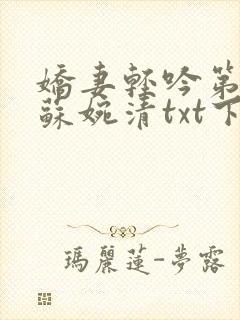 嬌妻輕吟第
蘇婉清txt下
瑪麗蓮-夢露